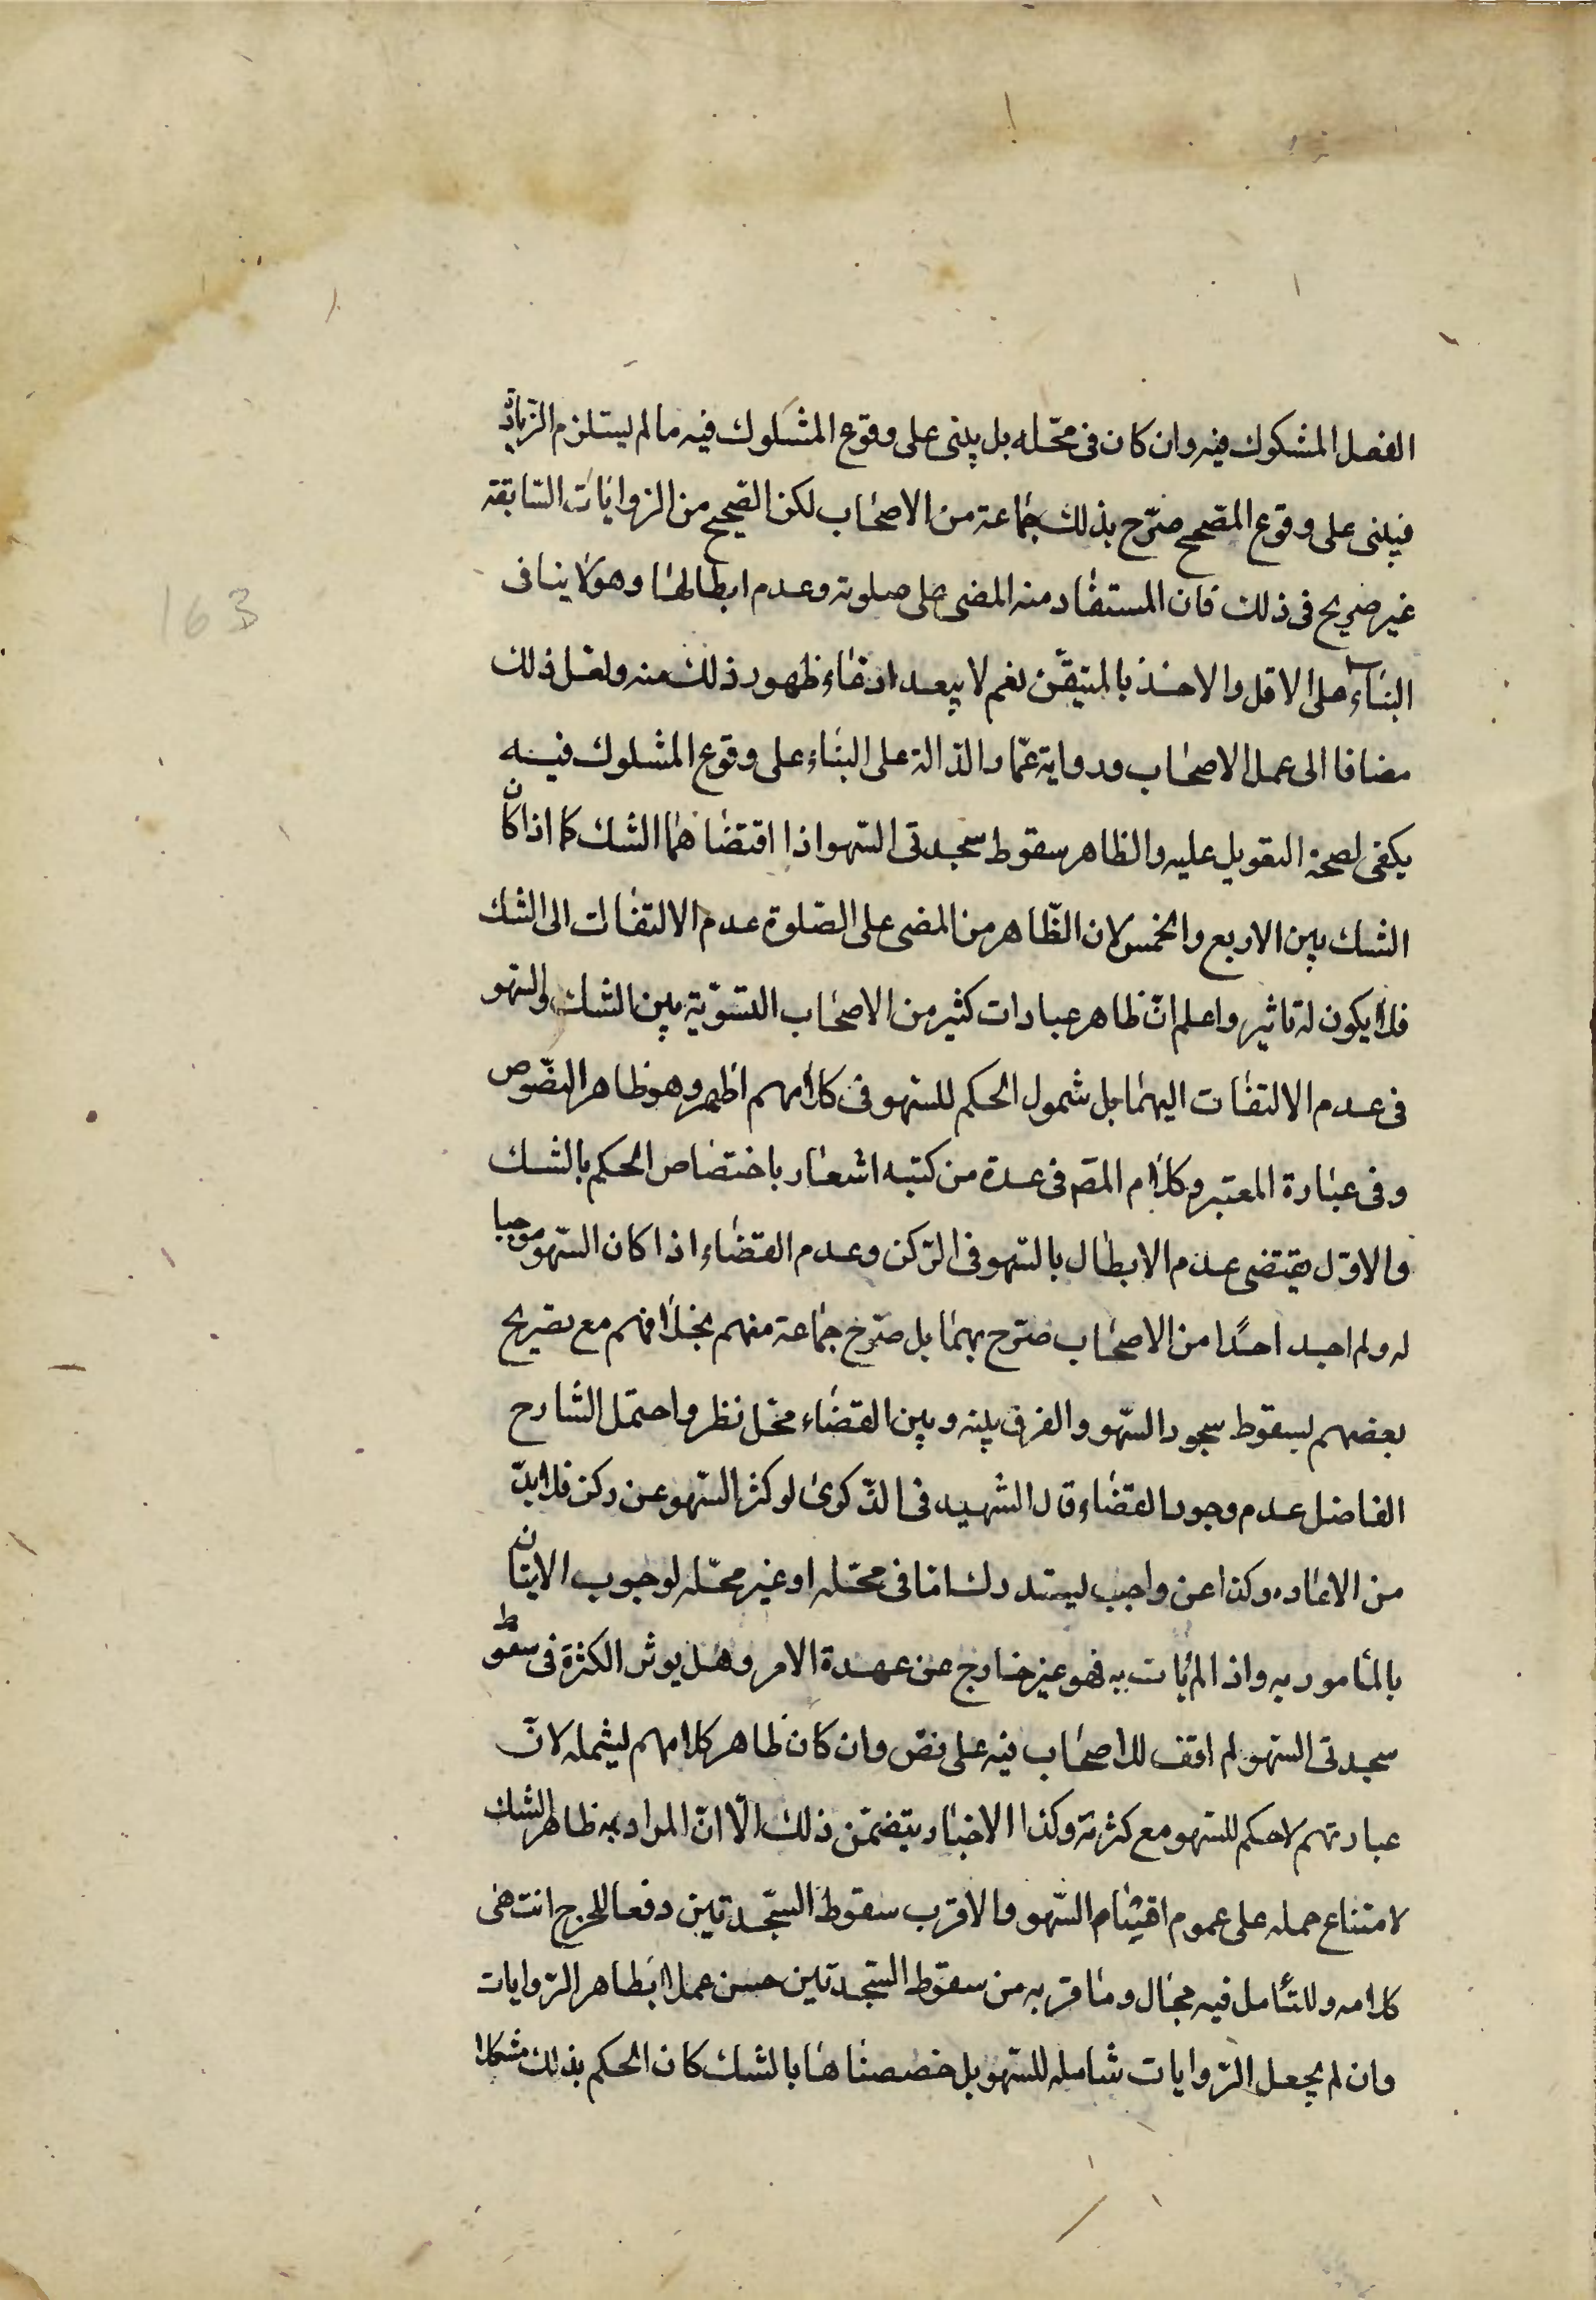 الفصل المشكوك فيه وان كان فى محّله بل يبنى على وقوع المشكوك فيه ما لم يستلزم الزّيادة
فيبنى على وقوع المصّحح صّرح بذلك جماعة من الاصحاب لكن الصّحيح من الرّوايات السّابقة
غير صريح فى ذلك فان المستفاد منه المضى على صلوته وعدم ابطالها وهو لا ينافى
البناء على الاقل والاخذ بالمتيقّن نعم لا يبعد ادعاء ظهور ذلك منه ولعل ذلك
مضافا الى عمل الاصحاب ورواية عمّار الدّالة على البناء على وقوع المشكوك فيه
يكفى لصحة التعويل عليه والظاهر سقوط سجدتى السّهو اذا اقتضاهما الشك كما اذا كان
الشك بين الاربع والخمس لان الظّاهر من المضى على الصّلوة عدم الالتفات الى الشك
فلا يكون له تاثير واعلم انّ ظاهر عبارات كثير من الاصحاب التسّوية بين الشك والسّهو
فى عدم الالتفات اليهما بل شمول الحكم للسّهو فى كلامهم اظهر وهو ظاهر النصّوص
وفى عبارة المعتبر وكلام المصّ فى عدة من كتبه اشعار باختصاص الحكم بالشك
والاوّل يقتضى عدم الابطال بالسّهو فى الرّكن وعدم القضاء اذا كان السّهو موجبا
له ولم اجد احدًا من الاصحاب صّرح بهما بل صّرح جماعة منهم بخلافهم مع تصريح
بعضهم بسقوط سجود السّهو والفرق بينه وبين القضاء محّل نظر واحتمل الشارح
الفاضل عدم وجوب القضاء وقال الشهيد فى الذّكرى لو كثر السّهو عن ركن فلا بدّ
من الاعاده وكذا عن واجب يستدرك امّا فى محّله او غير محّله لوجوب الاتيان
بالمأمور به واذا لم يأت به فهو غير خارج عن عهدة الامر وهل يوثر الكثرة فى سقوط
سجدتى السّهو لم اقف للاصحاب فيه على نصّ وان كان ظاهر كلامهم يشمله لانّ
عبارتهم لا حكم للسّهو مع كثرته وكذا الاخبار يتضمّن ذلك الّا انّ المراد به ظاهر الشك
لامتناع حمله على عموم اقسام السّهو والاقرب سقوط السّجدتين دفعا للحرج انتهى
كلامه وللتأمل فيه مجال وما قربه من سقوط السّجدتين حسن عملا بظاهر الرّوايات
وان لم يجعل الرّوايات شامله للسّهو بل خصصناها بالشك كان الحكم بذلك مشكلا
163